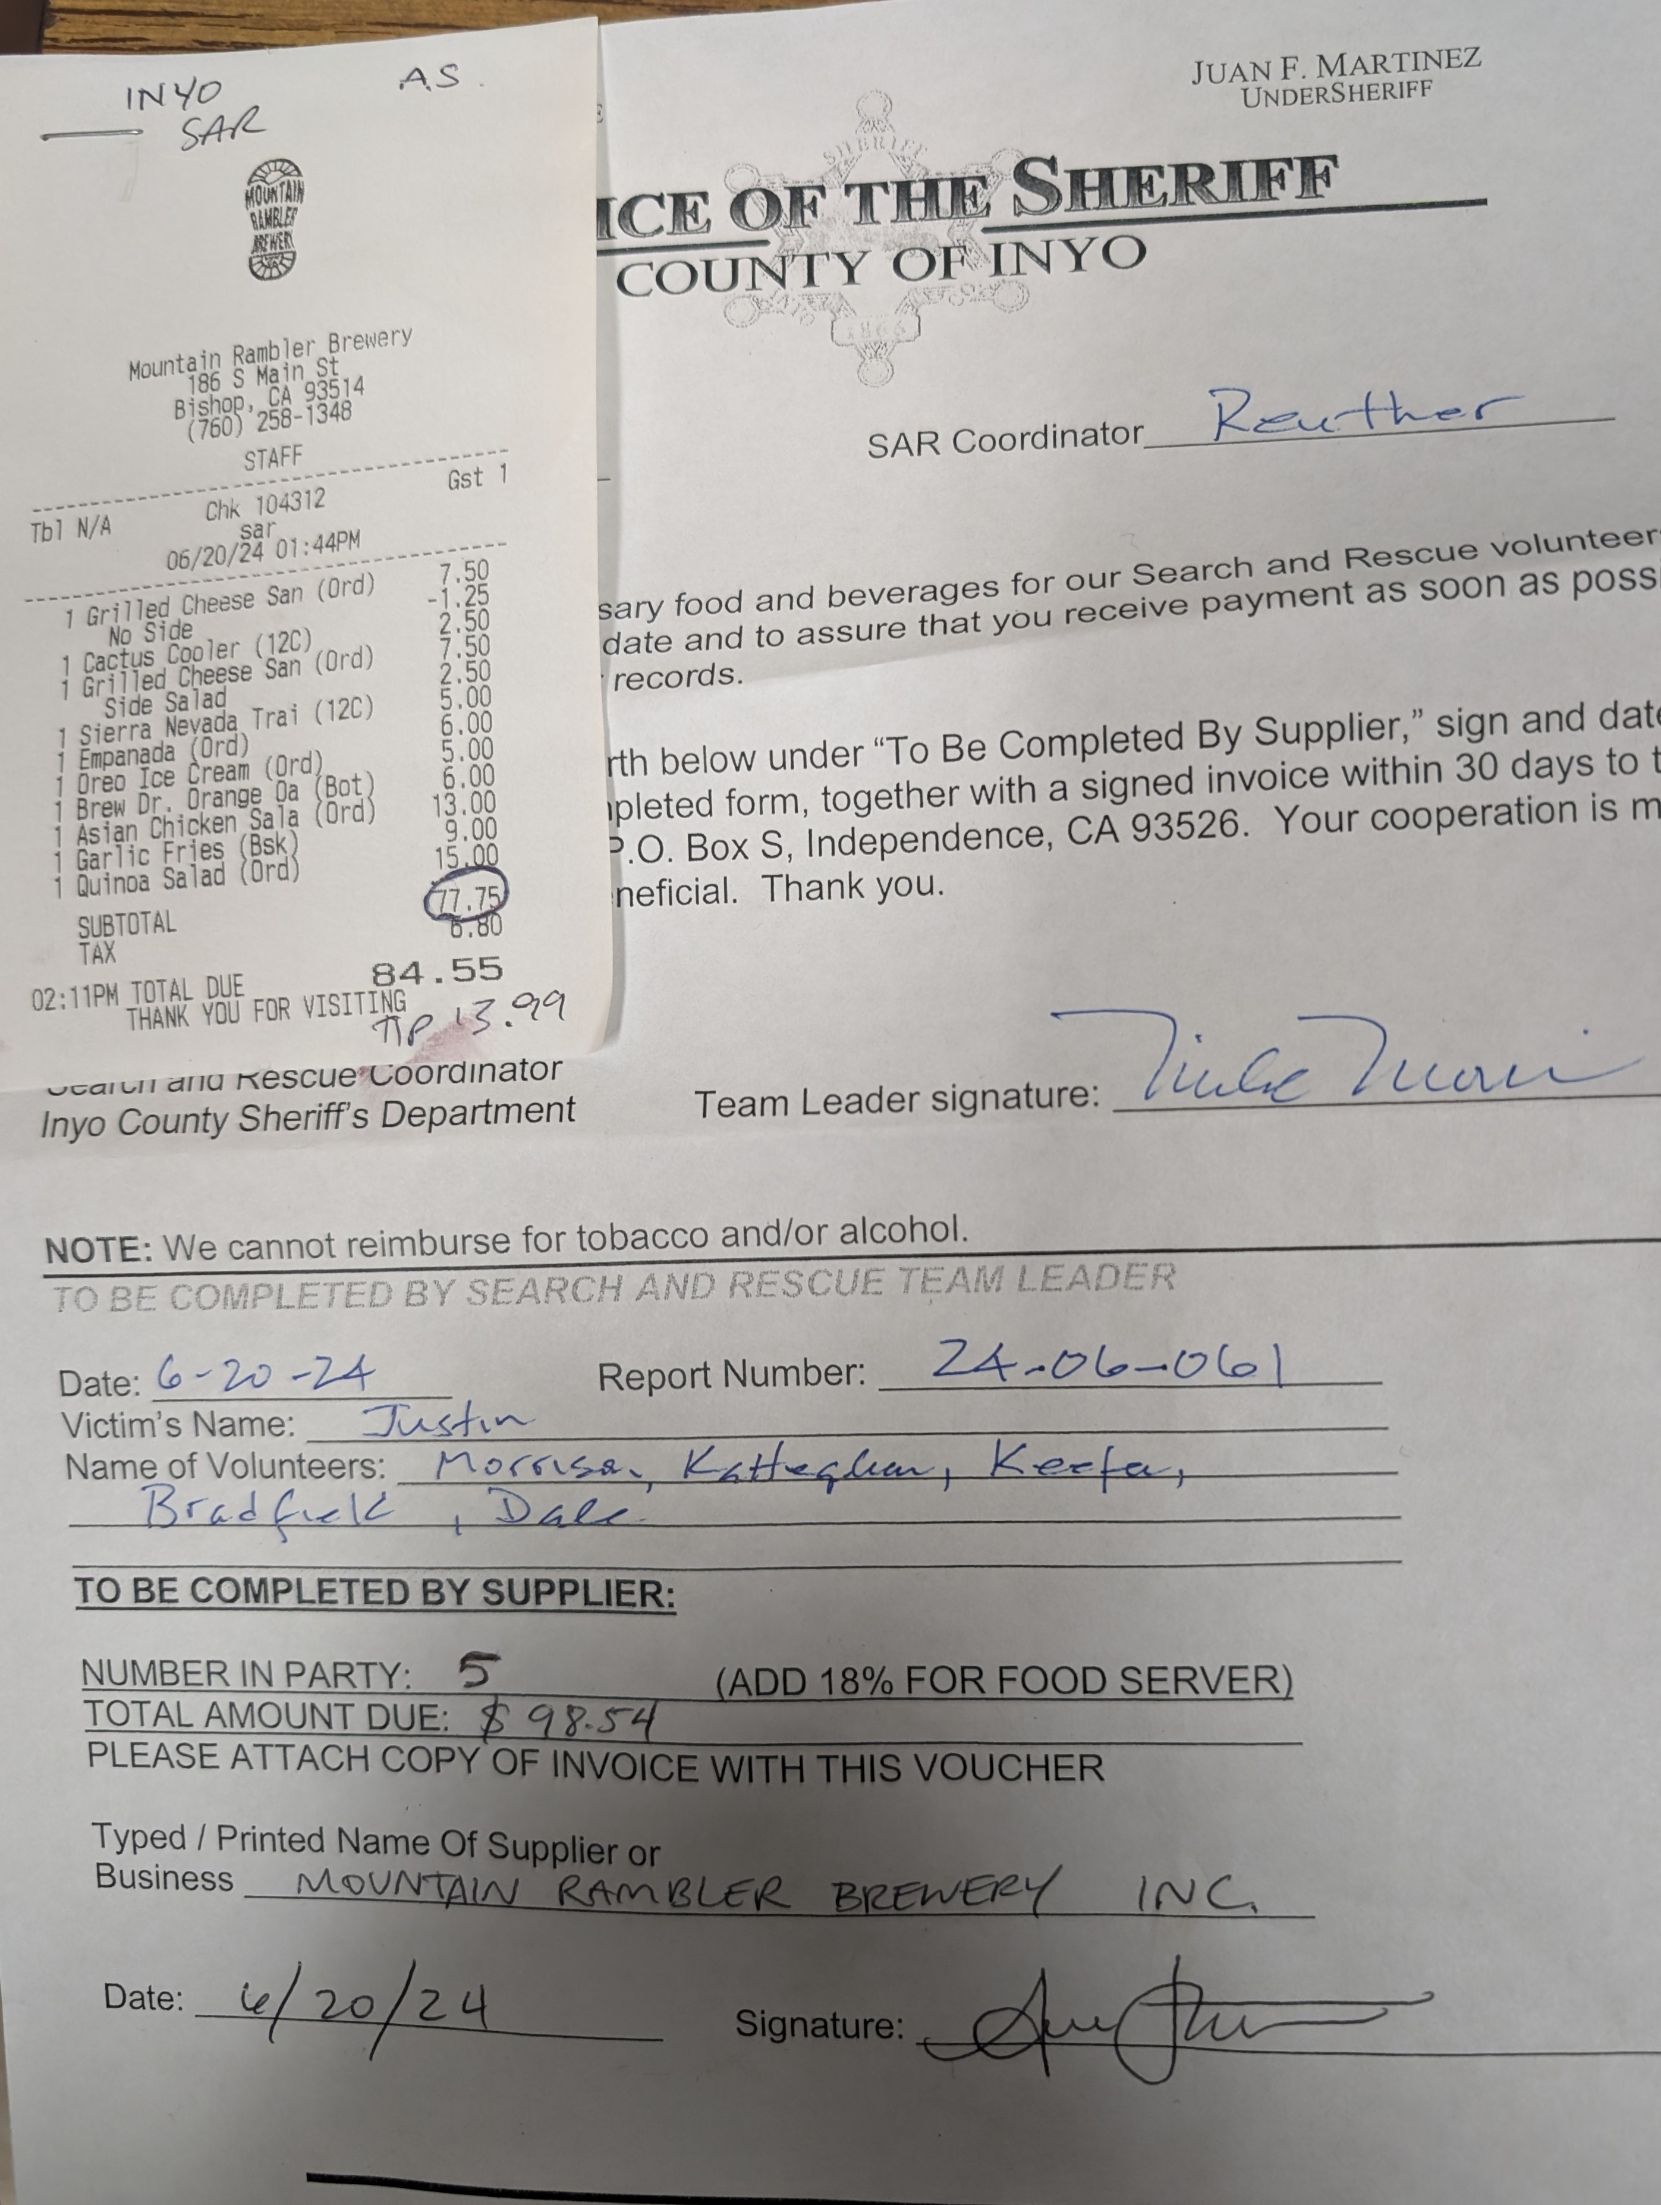 INYO
SAR
A.S.
MOUNTAIN
RAMBLER
BREWERY
Mountain Rambler Brewery
186 S Main St
Bishop, CA 93514
(760) 258-1348
STAFF
Tbl N/A Chk 104312 Gst 1
sar
06/20/24 01:44PM
1 Grilled Cheese San (Ord) 7.50
No Side -1.25
1 Cactus Cooler (12C) 2.50
1 Grilled Cheese San (Ord) 7.50
Side Salad 2.50
1 Sierra Nevada Trai (12C) 5.00
1 Empanada (Ord) 6.00
1 Oreo Ice Cream (Ord) 5.00
1 Brew Dr. Orange Oa (Bot) 6.00
1 Asian Chicken Sala (Ord) 13.00
1 Garlic Fries (Bsk) 9.00
1 Quinoa Salad (Ord) 15.00
SUBTOTAL 77.75
TAX 6.80
02:11PM TOTAL DUE 84.55
THANK YOU FOR VISITING
TIP 13.99
JUAN F. MARTINEZ
UNDERSHERIFF
SHERIFF
ICE OF THE SHERIFF
COUNTY OF INYO
1866
SAR Coordinator Reuther
sary food and beverages for our Search and Rescue volunteer
date and to assure that you receive payment as soon as poss
records.
rth below under “To Be Completed By Supplier,” sign and date
pleted form, together with a signed invoice within 30 days to t
P.O. Box S, Independence, CA 93526. Your cooperation is m
neficial. Thank you.
Search and Rescue Coordinator
Inyo County Sheriff's Department
Team Leader signature:
NOTE: We cannot reimburse for tobacco and/or alcohol.
TO BE COMPLETED BY SEARCH AND RESCUE TEAM LEADER
Date: 6-20-24 Report Number: 24-06-061
Victim's Name: Justin
Name of Volunteers: Morrison, Keefer,
Bradfield, Dale
TO BE COMPLETED BY SUPPLIER:
NUMBER IN PARTY: 5 (ADD 18% FOR FOOD SERVER)
TOTAL AMOUNT DUE: $ 98.54
PLEASE ATTACH COPY OF INVOICE WITH THIS VOUCHER
Typed / Printed Name Of Supplier or
Business MOUNTAIN RAMBLER BREWERY INC.
Date: 6/20/24 Signature: